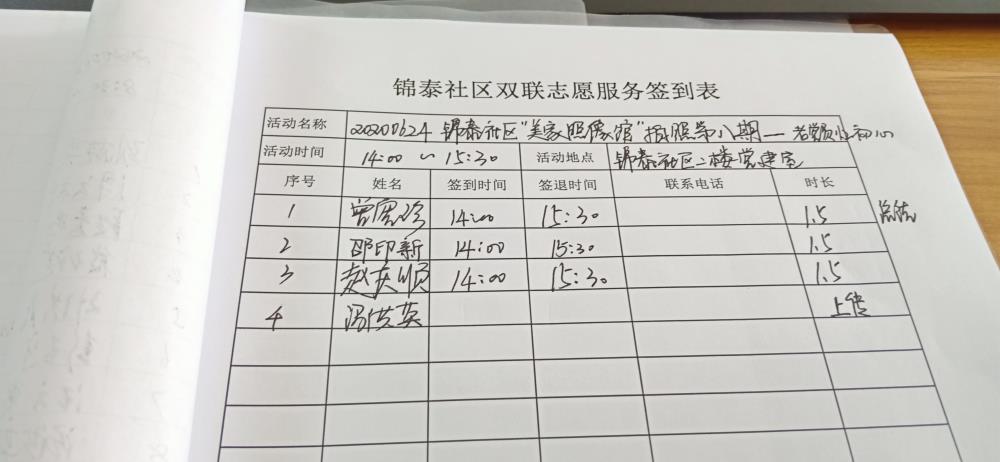 锦泰社区双联志愿服务签到表
活动名称 20200624 锦泰社区"美家照像馆"拍照第八期— 老党员 初心
活动时间 14:00 ~ 15:30 活动地点 锦泰社区二楼党建室
序号 姓名 签到时间 签退时间 联系电话 时长
1 曾宪珍 14:00 15:30 1.5 总结
2 邵印新 14:00 15:30 1.5
3 赵庆顺 14:00 15:30 1.5
4 冯供英 上传